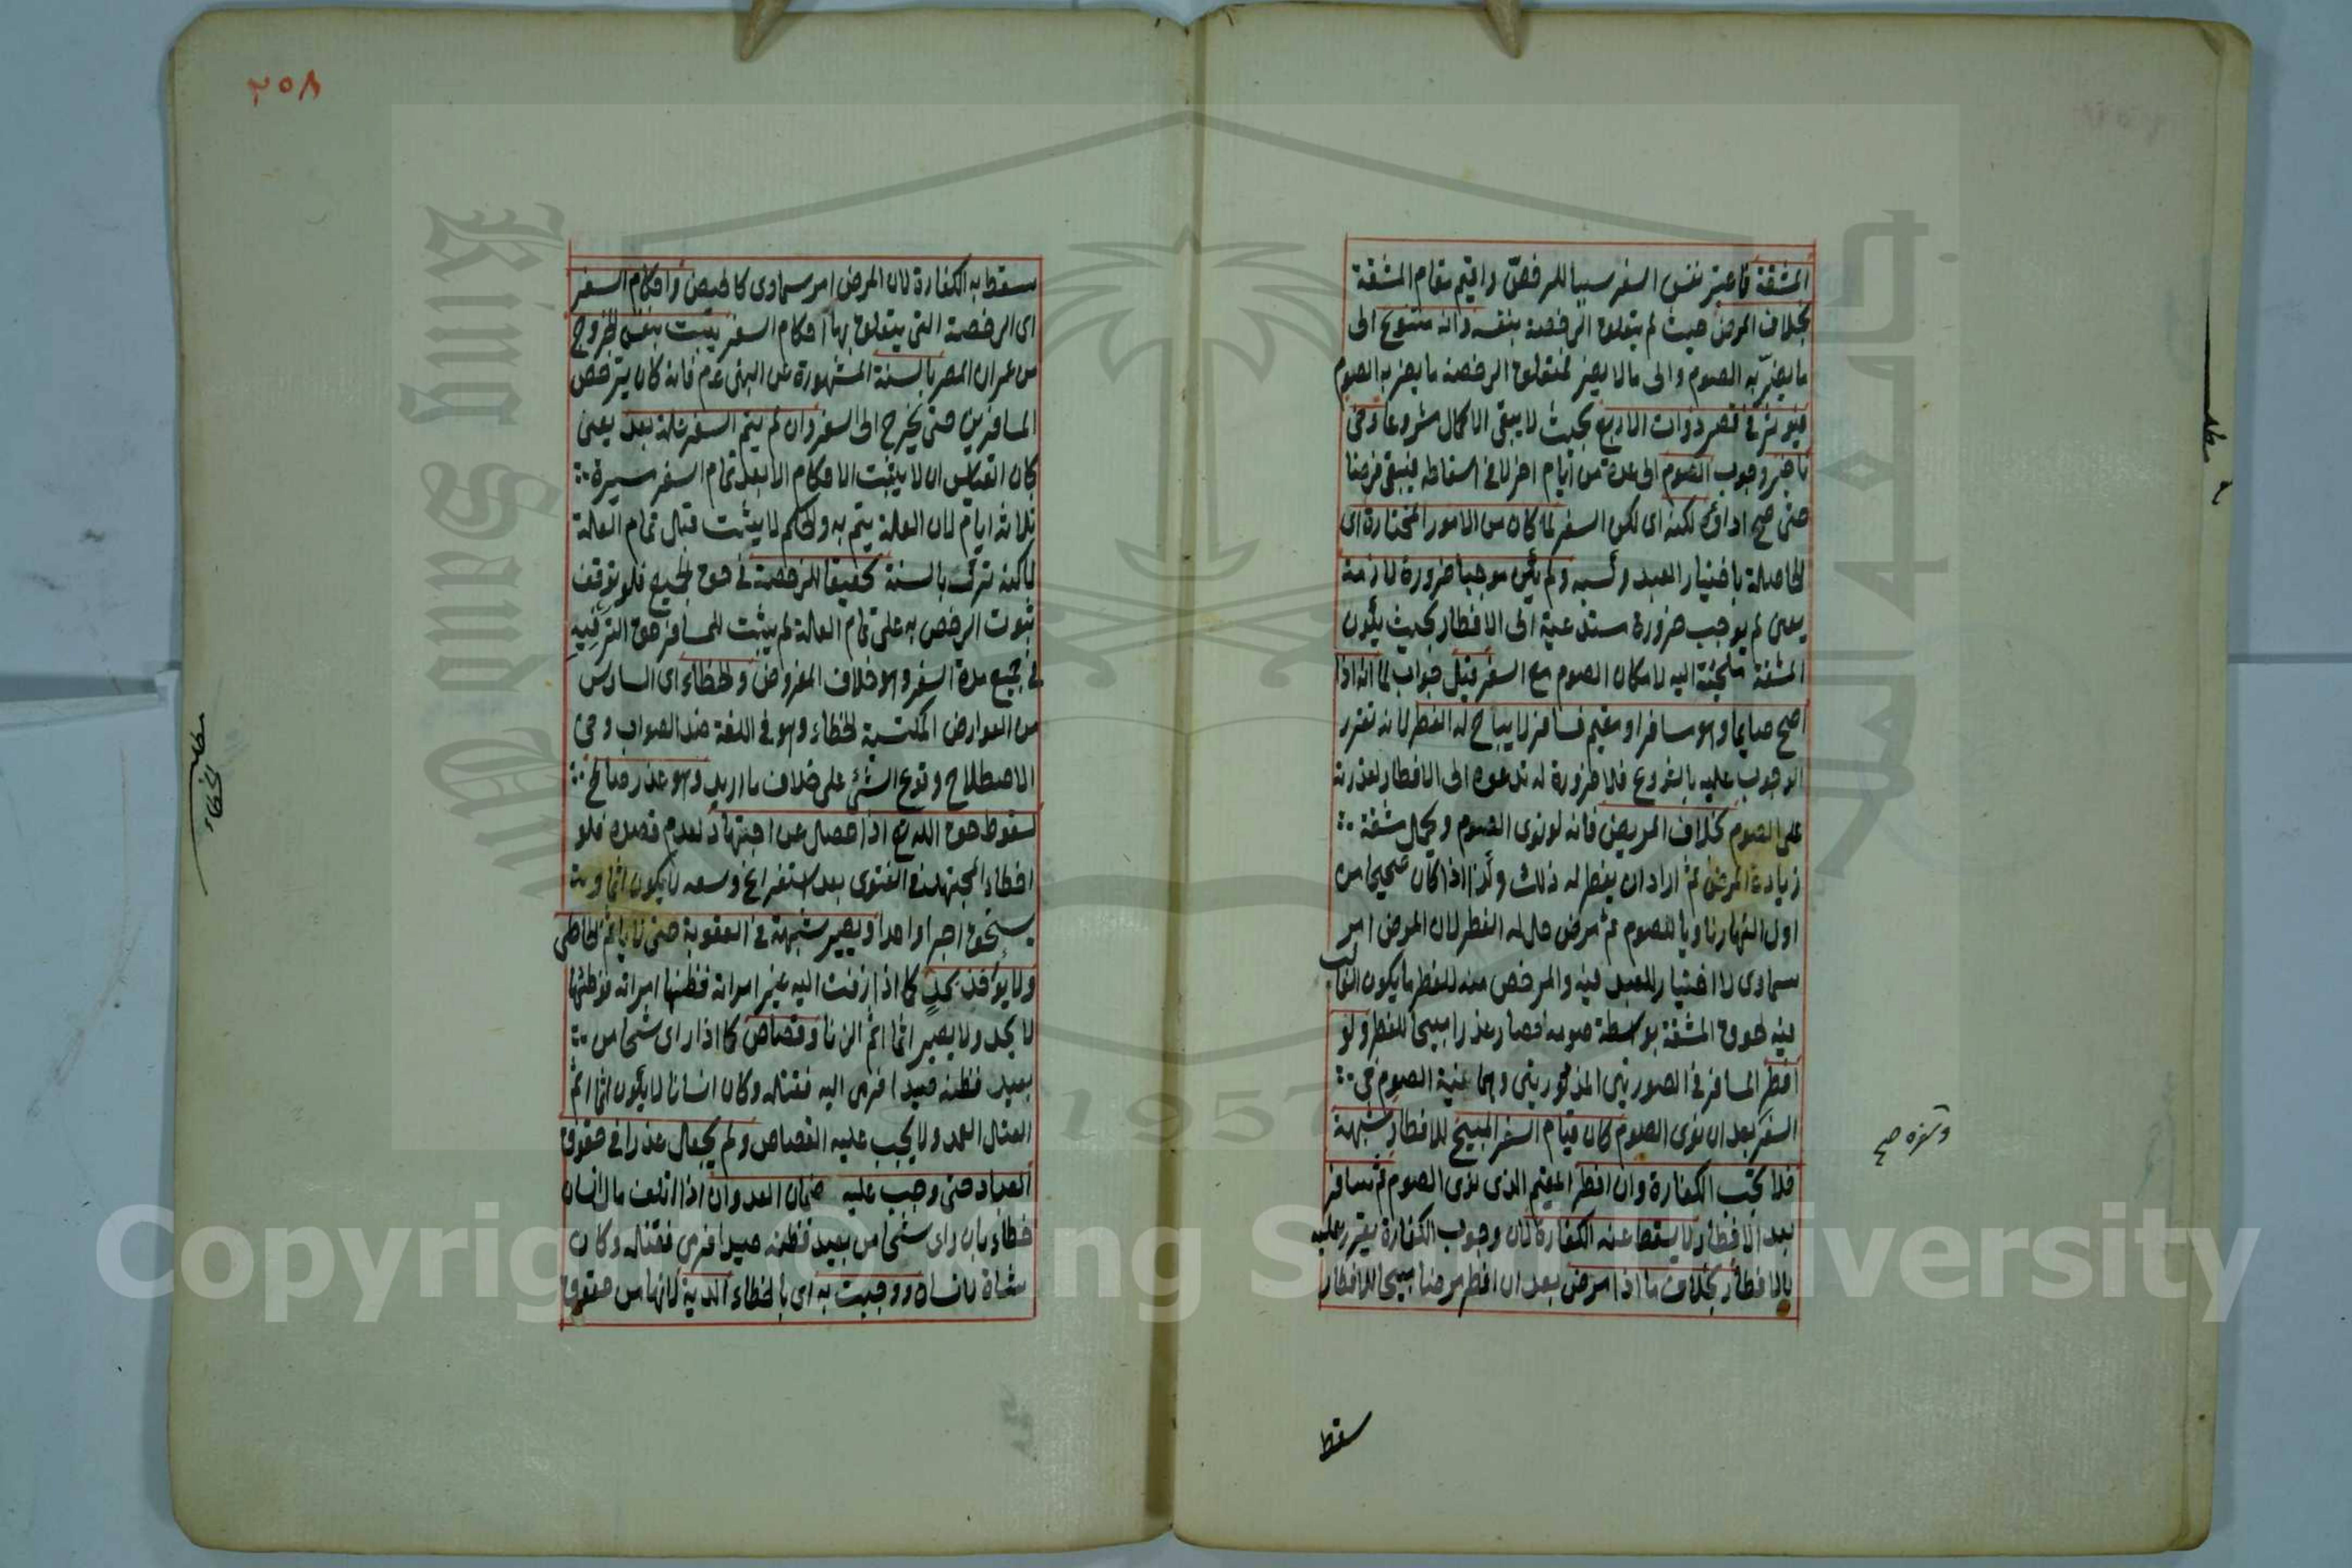 المشقة فاعتبر نفس السفر سببا للرخص واقيم مقام المشقة
بخلاف المرض حيث لم يتعلق الرخصة بنفسه وانه متنوع الى
ما يضر به الصوم والى ما لا يضر فتعلق الرخصة ما يضر به الصوم
فيؤثر في قصر ذوات الاربع بحيث لا يبقى الاكمال مشروعا وفي
تاخير وجوب الصوم الى عدة من ايام اخر لا في اسقاطه فيبقى فرضا
حتى صح اداؤه لكنه اى لكن السفر لما كان من الامور المختارة اى
الحاصلة باختيار العبد وكسبه ولم يكن موجبا ضرورة لازمة
يعنى لم يوجب ضرورة مستدعية الى الافطار بحيث يكون
المشقة ملجئة اليه لامكان الصوم مع السفر قيل جواب لما انه اذا
اصبح صايما وهو مسافر او مقيم فسافر لا يباح له الفطر لانه تقرر
الوجوب عليه بالشروع فلا ضرورة له تدعوه الى الافطار لقدرته
على الصوم بخلاف المريض فانه لو نوى الصوم وتحمل مشقة
زيادة المرض ثم اراد ان يفطر له ذلك وكذا اذا كان صحيحا من
اول النهار ناويا للصوم ثم مرض حل له الفطر لان المرض امر
سماوى لا اختيار للعبد فيه والمرخص منه للفطر ما يكون الغالب
فيه لحوق المشقة بواسطة صومه فصار عذرا مبيحا للفطر ولو
افطر المسافر في الصورتين المذكورتين وهما نية الصوم في
السفر بعد ان نوى الصوم كان قيام السفر المبيح للافطار شبهة
فلا تجب الكفارة وان افطر المقيم الذى نوى الصوم ثم سافر
بعد الافطار لا يسقط عنه الكفارة لان وجوب الكفارة تقرر عليه
بالافطار بخلاف ما اذا مرض بعد ان افطر مرضا مبيحا للافطار
سقط
٢٥٨
سقط به الكفارة لان المرض امر سماوى كالحيض واحكام السفر
اى الرخصة التي يتعلق بها احكام السفر يثبت بنفس الخروج
من عمران المصر بالسنة المشهورة عن النبى عم فانه كان يترخص
المسافرين حتى يخرج الى السفر وان لم يتم السفر علة بعد يعنى
كان القياس ان لا يثبت الاحكام الا بعد تمام السفر مسيرة
ثلاثة ايام لان العلة يتم به والحكم لا يثبت قبل تمام العلة
لكنه ترك بالسنة تحقيقا للرخصة في حق الجميع فلو توقف
ثبوت الرخص به على تمام العلة لم يثبت للمسافر حق الترفيه
في جميع مدة السفر وهو خلاف المفروض والخطاء اى السادس
من العوارض المكتسبة الخطاء وهو في اللغة ضد الصواب وفي
الاصطلاح وقوع الشئ على خلاف ما اريد وهو عذر صالح
لسقوط حق الله تع اذا حصل عن اجتهاد لعدم قصده فلو
اخطاء المجتهد في الفتوى بعد استفراغ وسعه لا يكون اثما وبه
يستحق اجرا واحدا ويصير شبهة في العقوبة حتى لا ياثم الخاطى
ولا يؤخذ بحد كما اذا زفت اليه غير امراته فظنها امراته فوطئها
لا يحد ولا يصير اثما اثم الزنا وقصاص كما اذا راى شبحا من
بعيد فظنه صيدا فرمى اليه فقتله وكان انسانا لا يكون اثما اثم
القتل العمد ولا يجب عليه القصاص ولم يجعل عذرا في حقوق
العباد حتى وجب عليه ضمان العدوان اذا اتلف مال انسان
خطاء بان راى شبحا من بعيد فظنه صيدا فرمى فقتله وكان
شاة لانسان ووجبت به اى بالخطاء الدية لانها من حقوق
مطلب
الخطاء